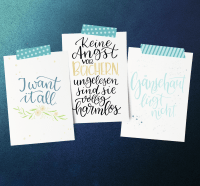 I want
it all
Keine
Angst
vor
BÜCHERN
ungelesen
sind sie
völlig
harmlos.
Gänsehaut
lügt
nicht